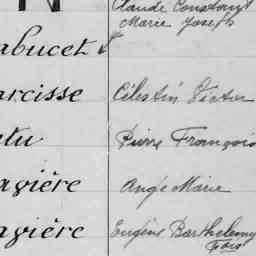 N Claude Constant
Marie Joseph
abucet
arcisse Célestin Victor
etu Pierre François
avière Ange Marie
avière Eugène Barthelemy
Fois